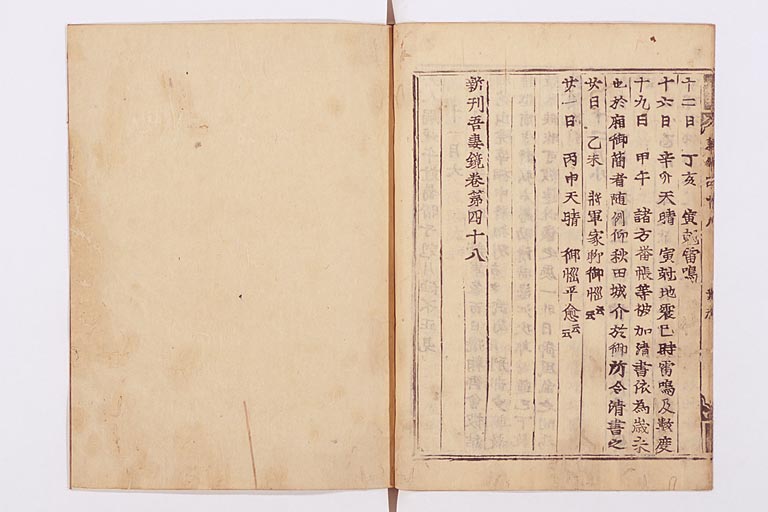 十二日 丁亥 寅尅雷鳴
十六日 辛卯天晴 寅尅地震巳時雷鳴及數度
十九日 甲午 諸方番帳等被加清書依為歳末
也於廂御簡者随例仰秋田城介於御所令清書之
廿日 乙未 將軍家聊御惱云云
廿一日 丙申天晴 御惱平愈云云
新刊吾妻鏡卷第四十八